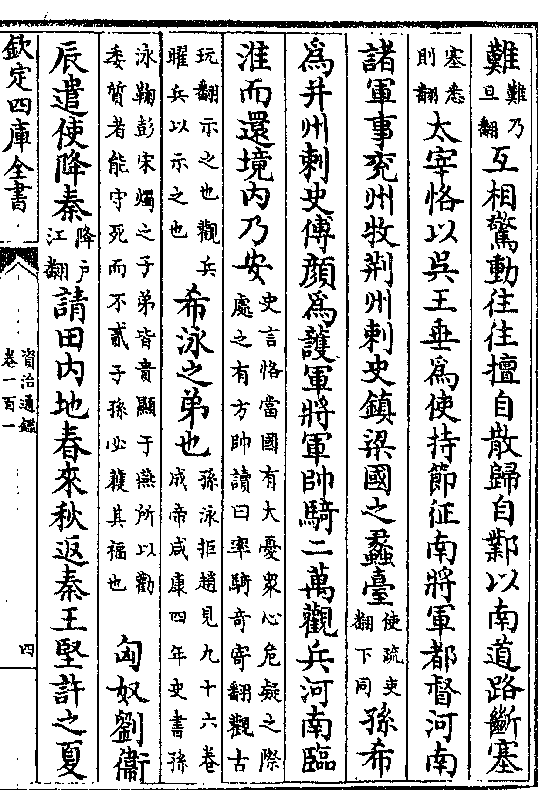 難難乃旦翻互相驚動往往擅自散歸自鄴以南道路斷塞
塞悉則翻太宰恪以吳王垂爲使持節征南將軍都督河南
諸軍事兖州牧荆州刺史鎮梁國之蠡臺使疏吏翻下同孫希
爲并州刺史傅顔爲護軍將軍帥騎二萬觀兵河南臨
淮而還境内乃安史言恪當國有大憂衆心危疑之際處之有方帥讀曰率騎奇寄翻觀古
玩翻示之也觀兵曜兵以示之也希泳之弟也孫泳拒趙見九十六卷成帝咸康四年史書孫
泳鞠彭宋燭之子弟皆貴顯于燕所以勸委質者能守死而不貳子孫必䕶其福也匈奴劉衞
辰遣使降秦降户江翻請田内地春來秋返秦王堅許之夏
欽定四庫全書
資治通鑑
卷一百一
四